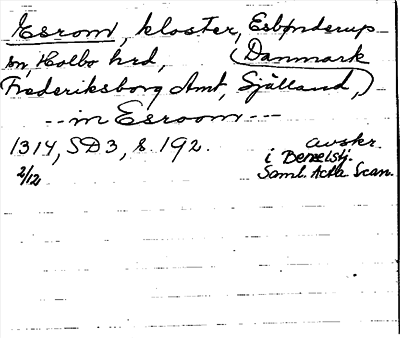 Esrom, kloster, Esbønderup
sn, Holbo hrd, (Danmark
Frederiksborg Amt, Själland,)
-- in Esroom --
1314, SD3, s. 192. avskr.
2/12 i Benzelstj.
Saml. Acta Scan.